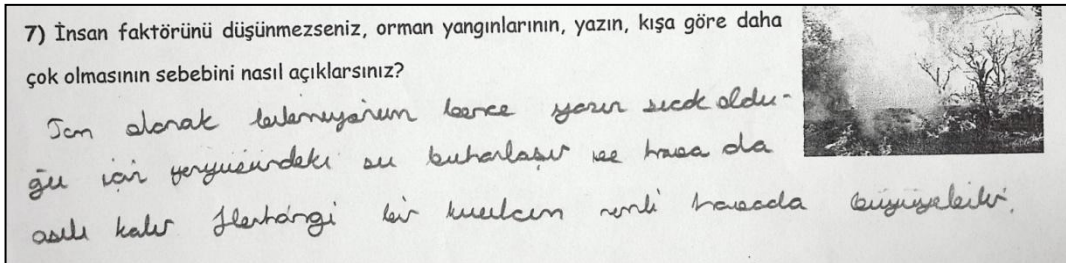 7) İnsan faktörünü düşünmezseniz, orman yangınlarının, yazın, kışa göre daha
çok olmasının sebebini nasıl açıklarsınız?
Tam olarak bilemiyorum bence yazın sıcak oldu-
ğu için yeryüzündeki su buharlaşır ve hava da
asılı kalır Herhangi bir kıvılcım nemli havada büyüyebilir.